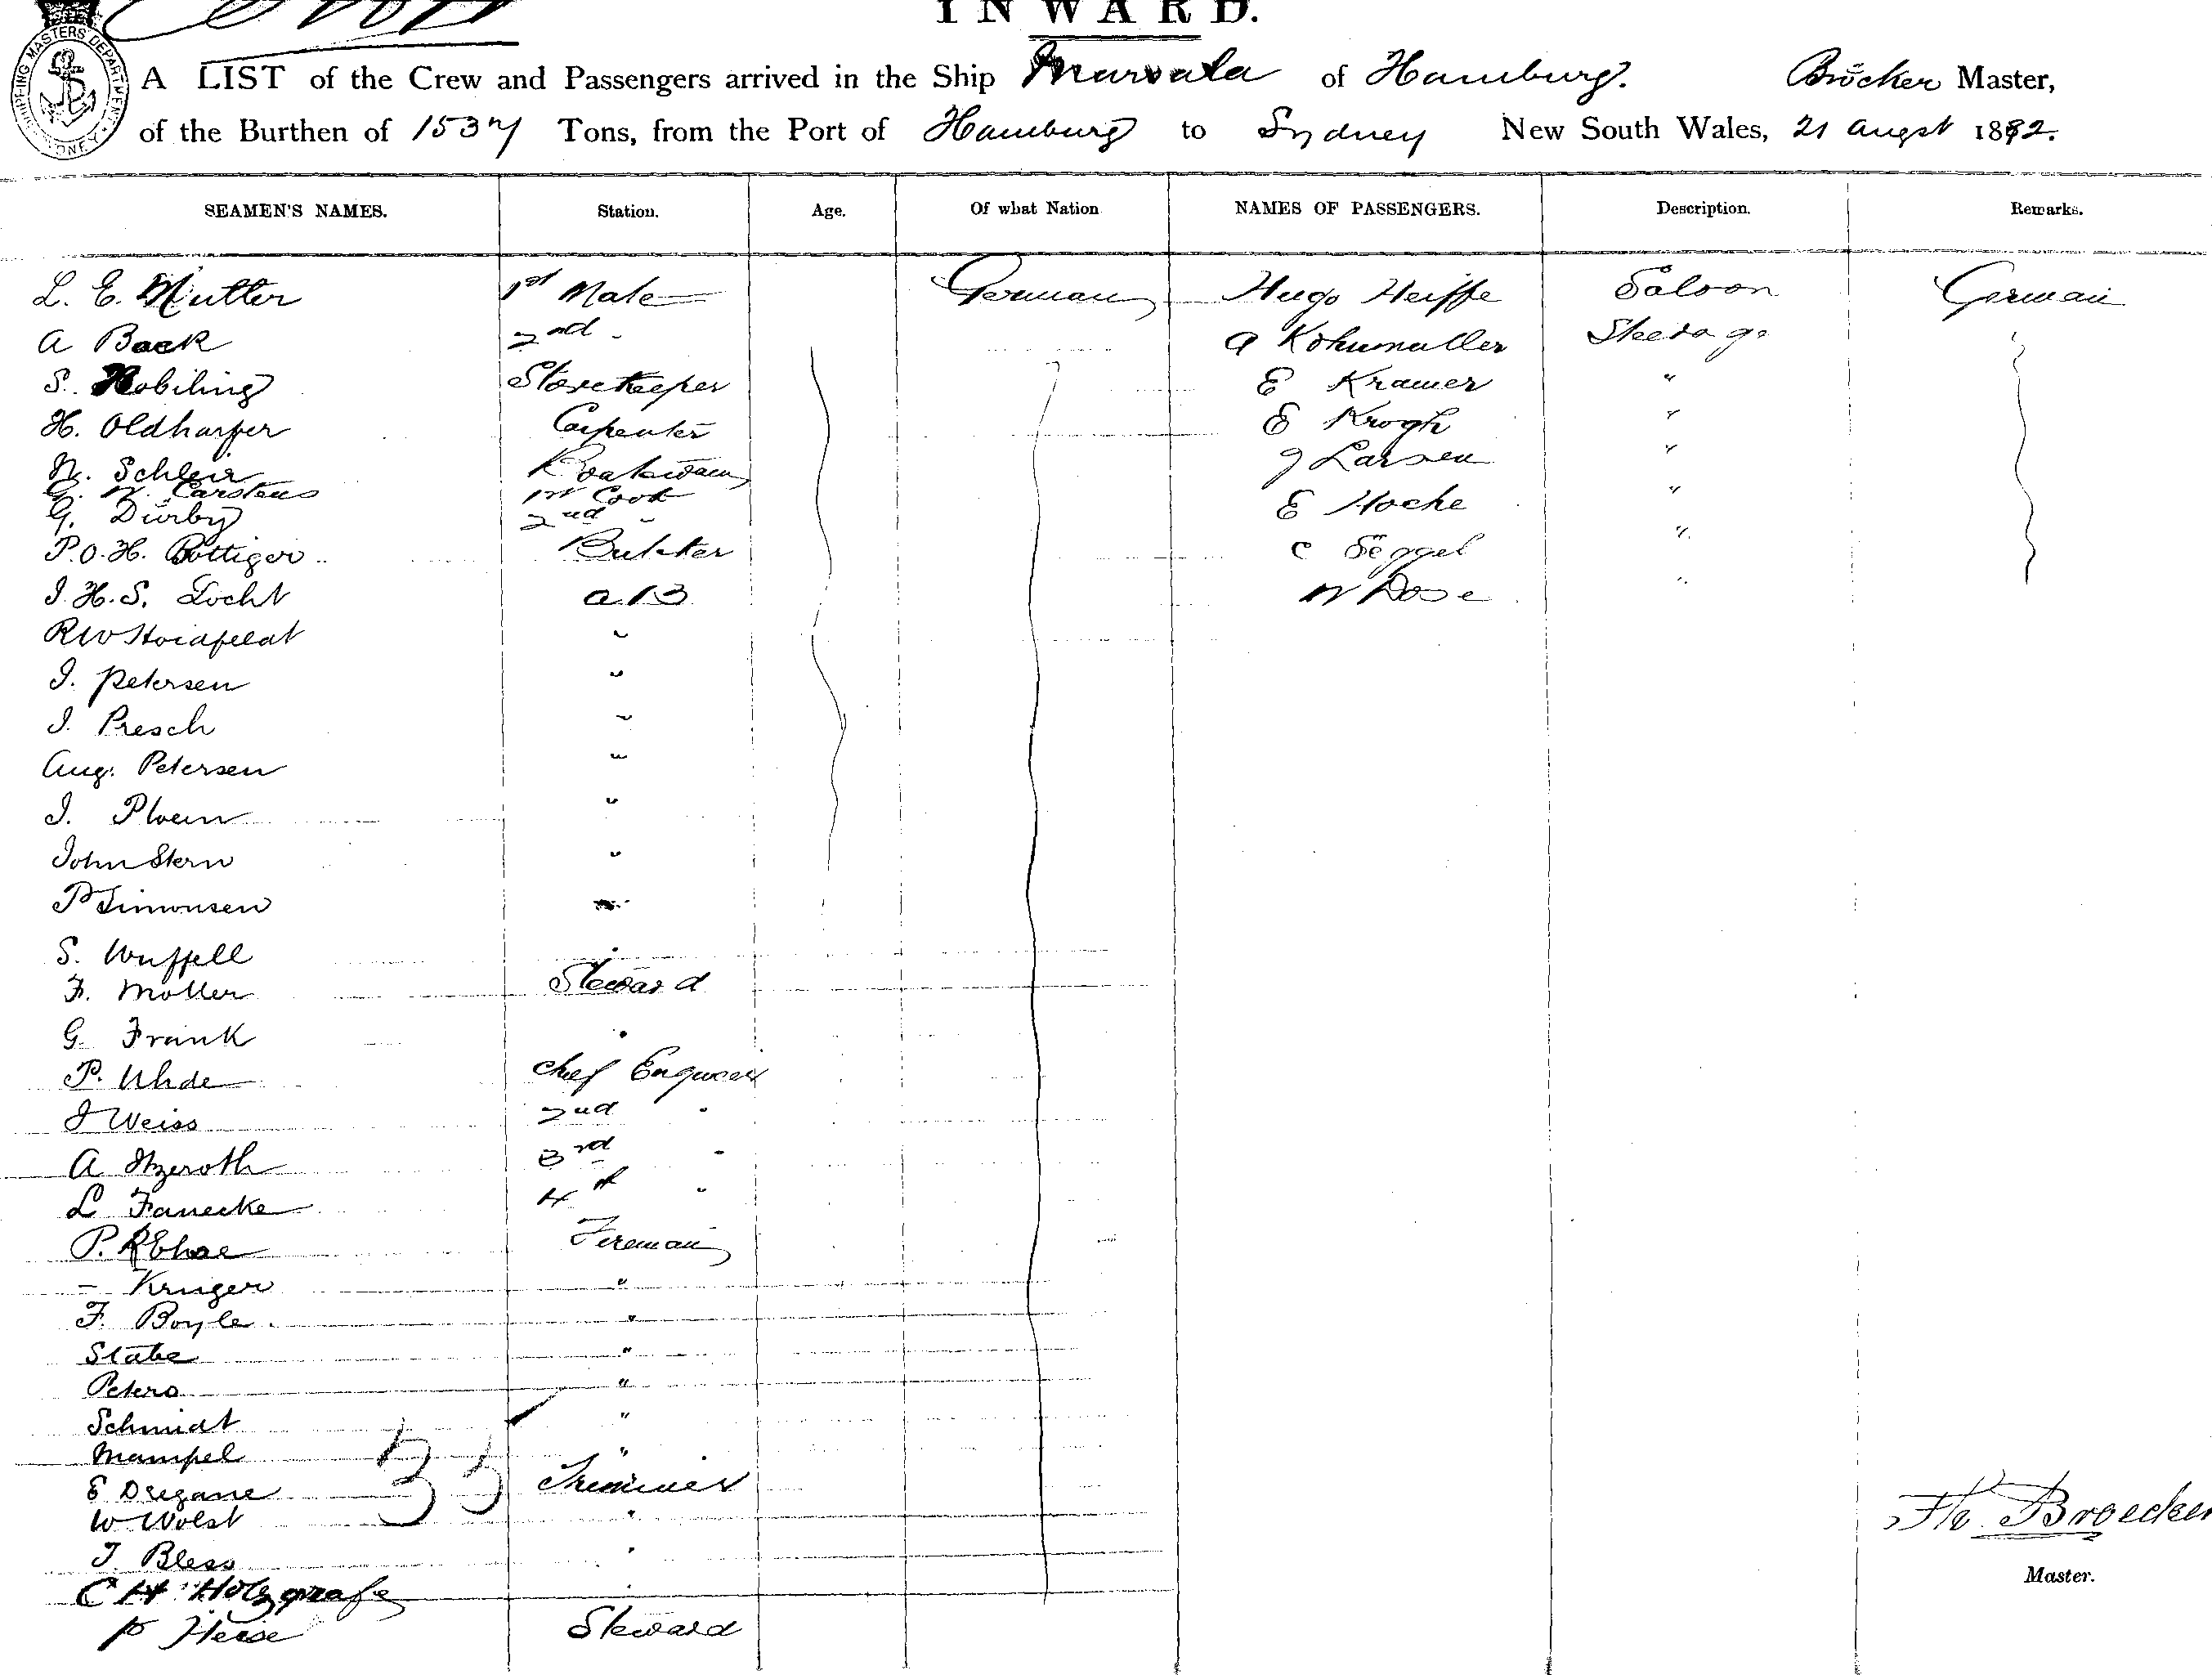 INWARD.
A LIST of the Crew and Passengers arrived in the Ship Marsala of Hamburg. Bröcker Master,
of the Burthen of 1537 Tons, from the Port of Hamburg to Sydney New South Wales, 21 Augst 1892.
SEAMEN'S NAMES. Station. Age. Of what Nation NAMES OF PASSENGERS. Description. Remarks.
L. E. Mutter 1st Mate German Hugo Heiffe Saloon German
A Back 2nd " A Steerage
S. Storekeeper E Kramer "
H. Oldharfer Carpenter E Krogh "
N. Schleir Boatswain J Larsen "
G. W. Carstens 1st Cook E Hoche "
G. Dürby 2nd "
P.O.H. Böttiger Butcher C Seggel "
J.H.S. Locht AB W Dose "
R W "
J. Petersen "
J. Presch "
Aug. Petersen "
J. Ploen "
John Stern "
P Simonsen "
S. Wuffell "
F. Möller Steward
G Frank "
P. Uhde Chef Engineer
J Weiss 2nd "
A Itzeroth 3rd "
L Fanecke 4th "
P. Fireman
- Kruger "
F. Boyle "
Stabe "
Peters "
Schmidt "
Mampel "
E Dregane Trimmer
W Wolst "
J Bless "
C H Holzgrafe "
P Heise Steward
33
Th. Broecker
Master.